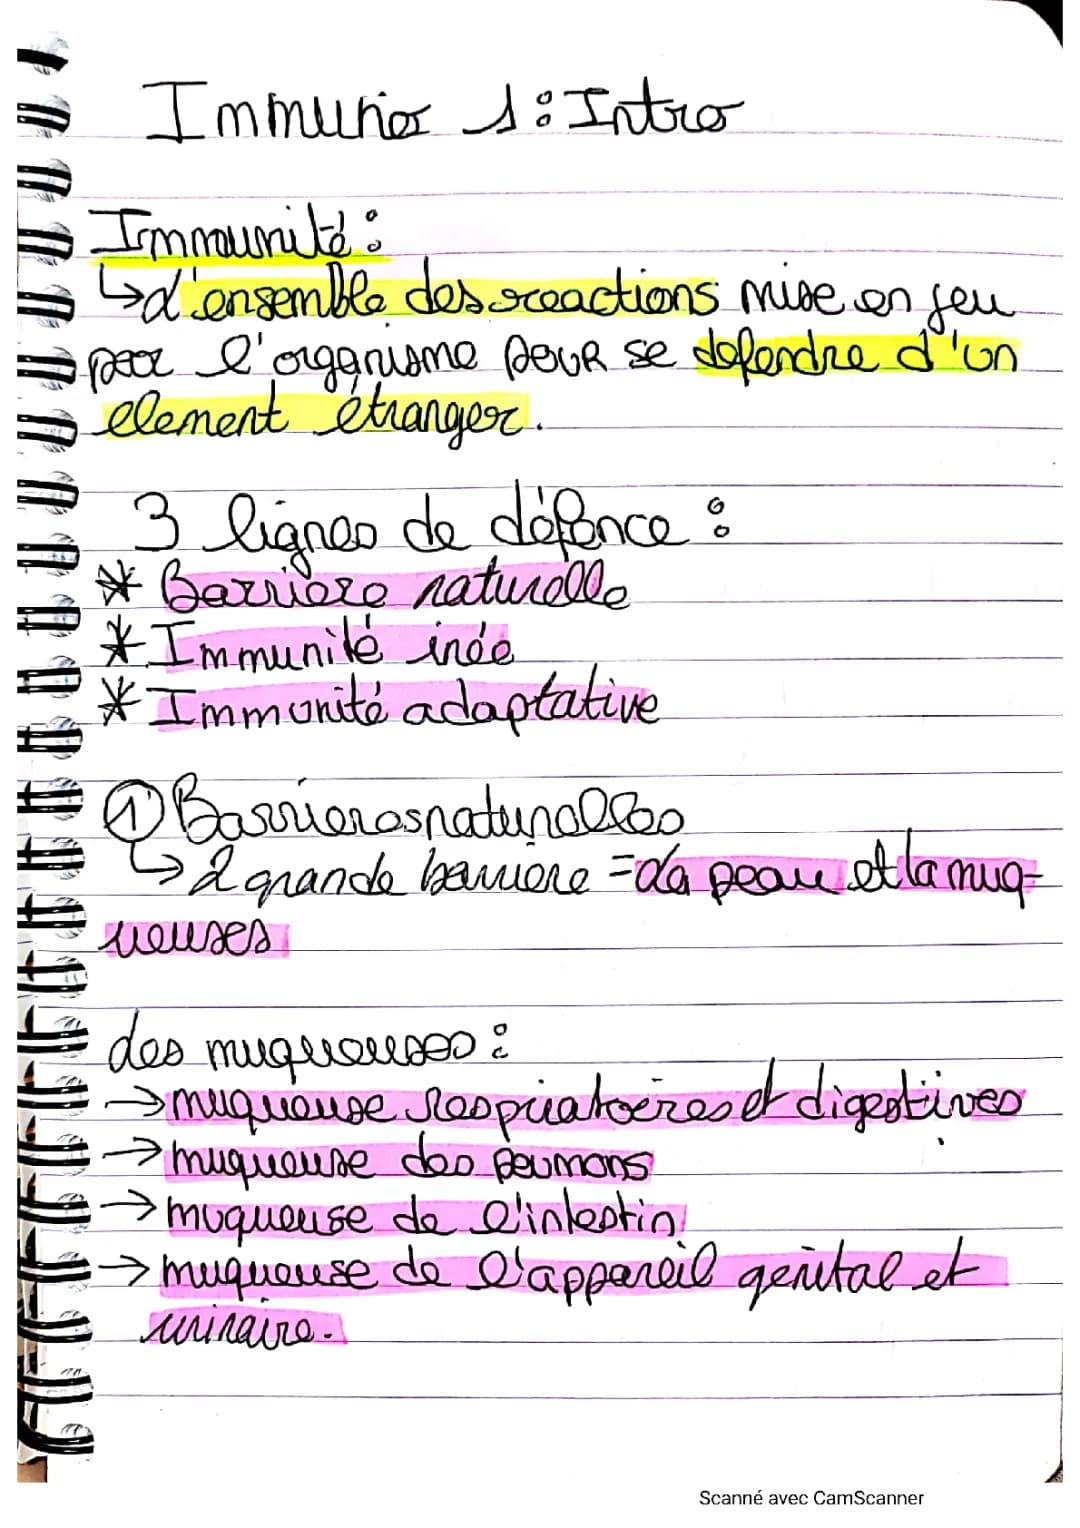 Immunio 1: Intro
Immunité :
↳ L'ensemble des reactions mise en jeu
par l'organisme pour se defendre d'un
element étranger.
3 lignes de défence :
* Barriere naturelle
* Immunité inée
* Immunité adaptative
① Barrieres naturelles
↳ 2 grande barriere = La peau et la muq-
ueuses
Les muqueuses :
→ muqueuse respiratoires et digestives
→ muqueuse des poumons
→ muqueuse de l'intestin
→ muqueuse de l'appareil genital et
urinaire.
Scanné avec CamScanner